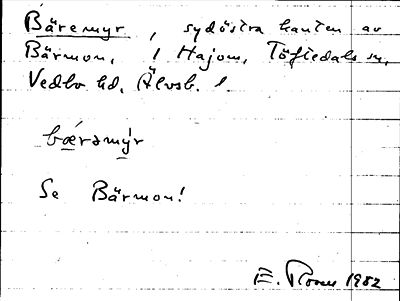 Bäremyr, sydöstra kanten av
Bärmon, i Hajom, Töftedals sn,
Vedbo hd. Älvsb. l.
bærəmýr
Se Bärmon!
E. 1982